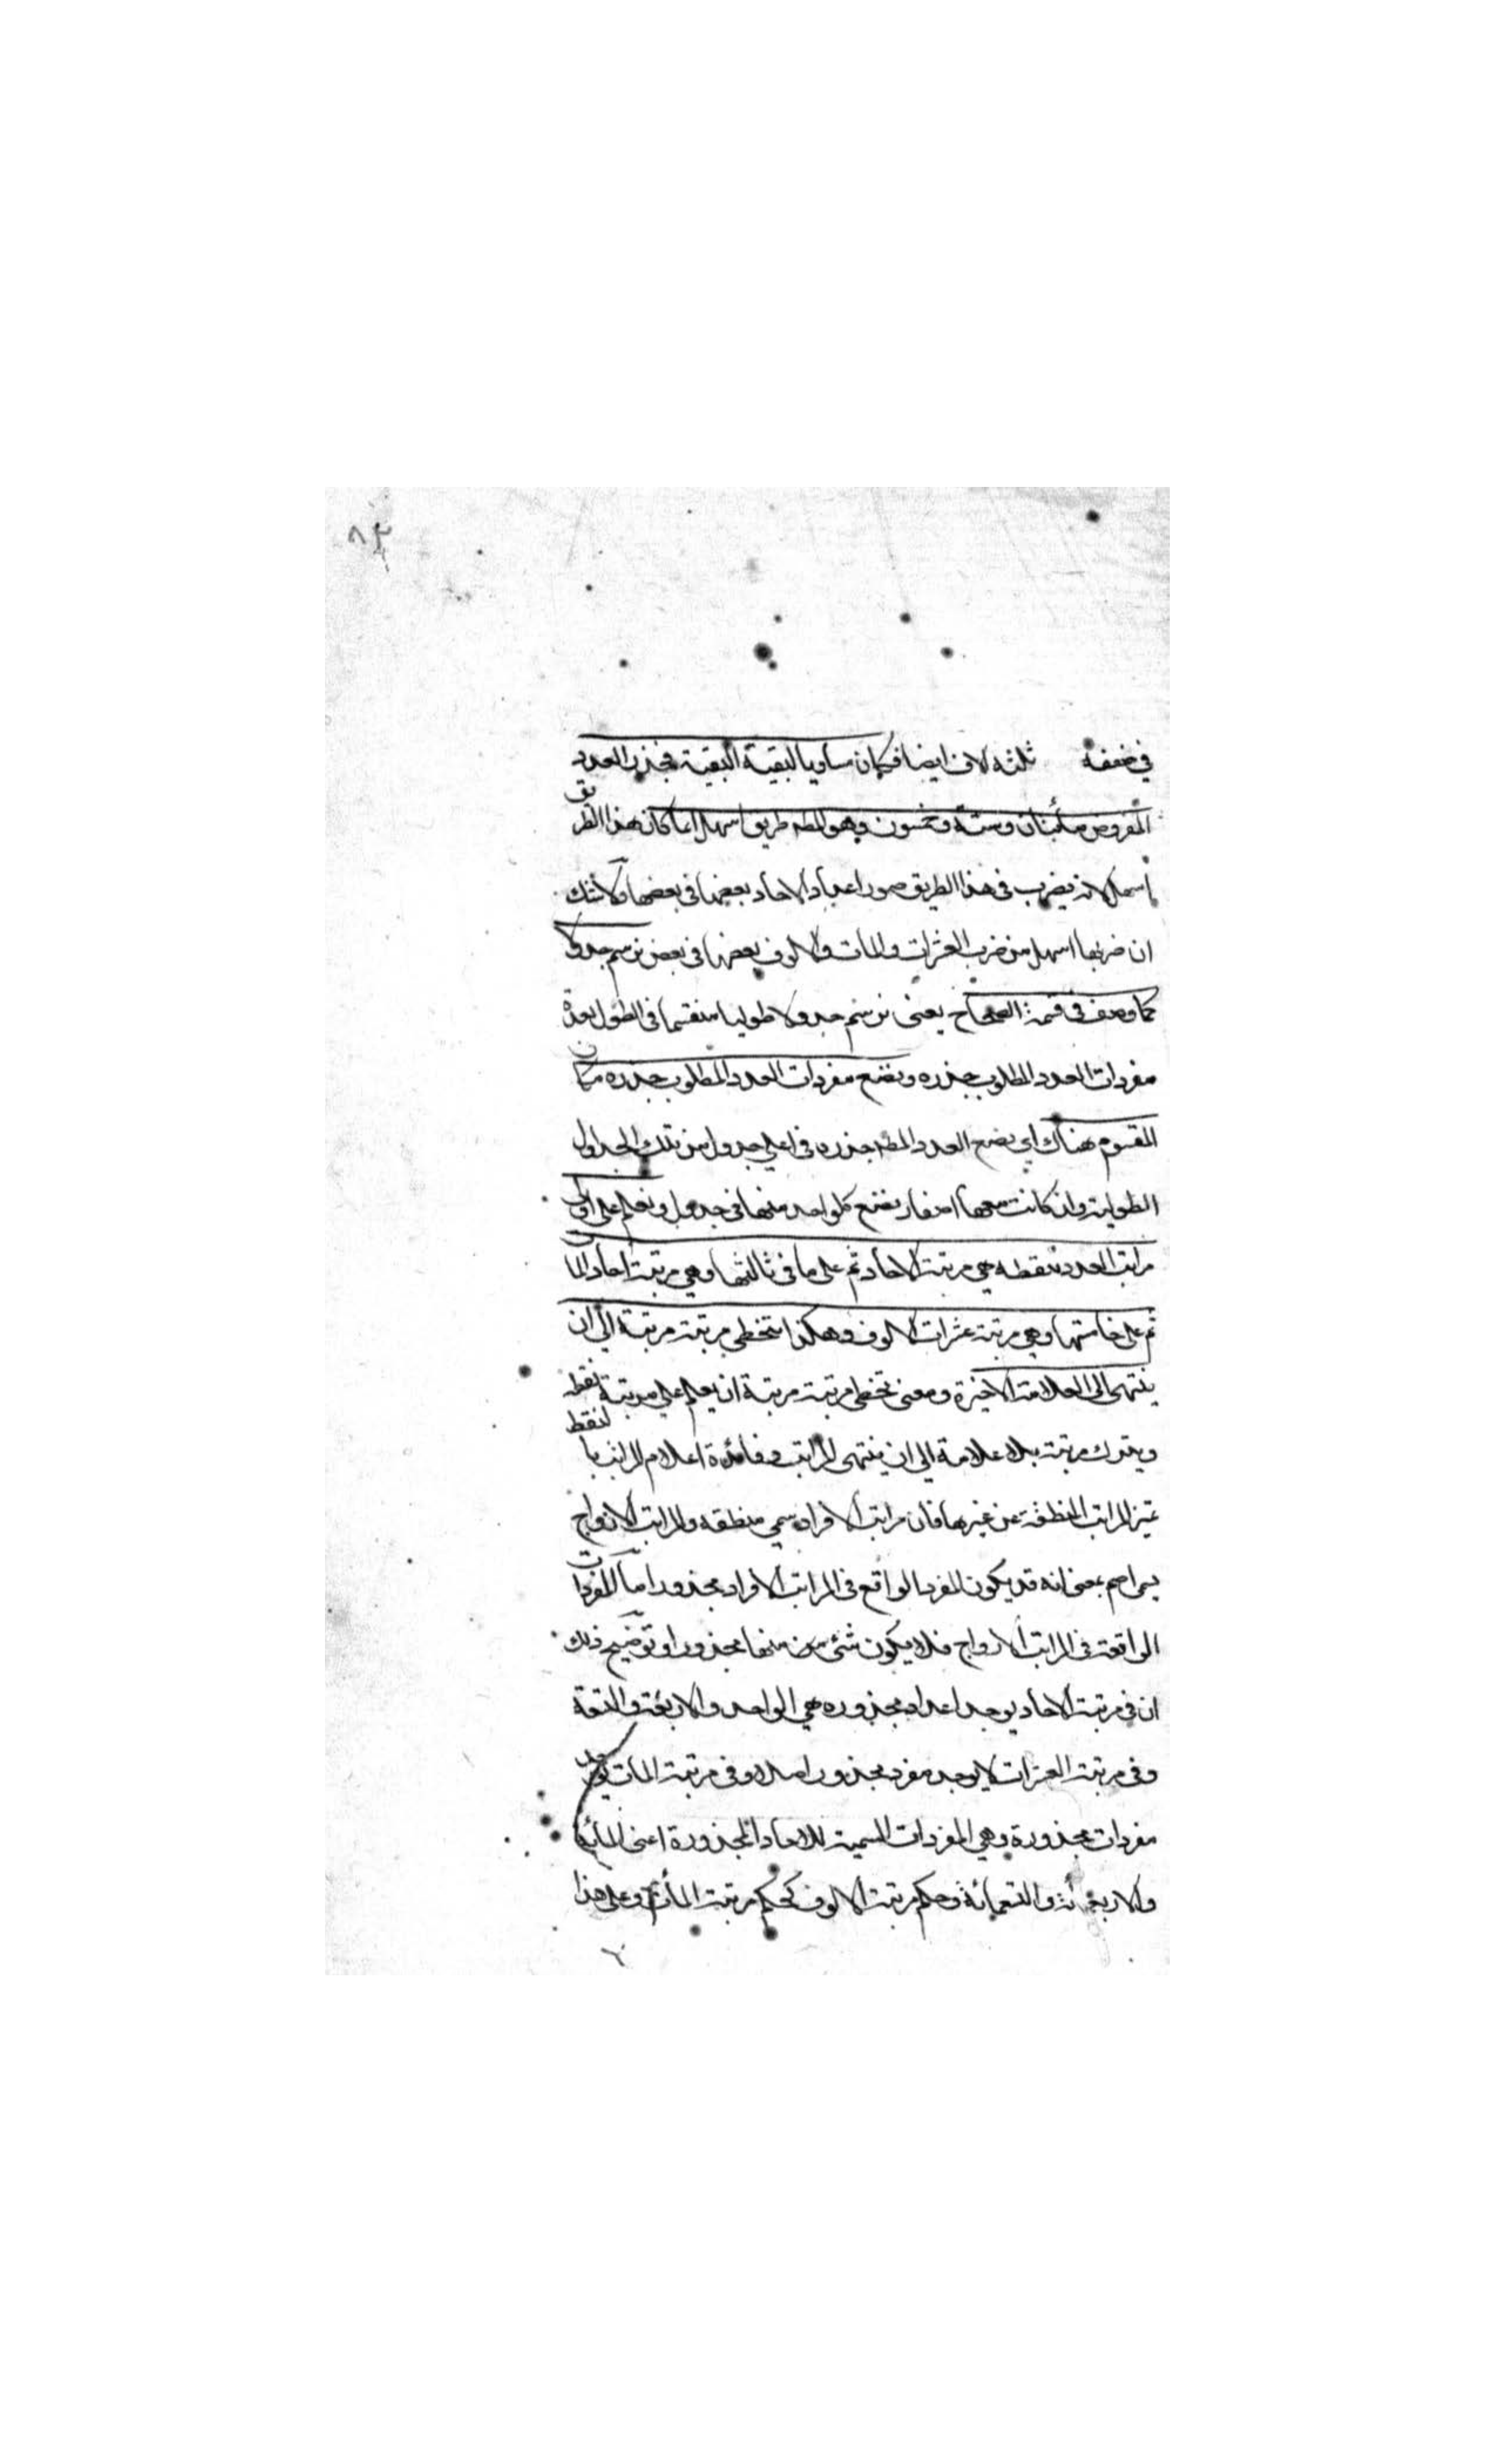 ٨٣
في ضعفه ثلثه لاف ايضا فكان مساويا لبقية البقية فجذر العدد
المفروض مأتان وستة وخمسون وهو المطه طريق اسهل انما كان هذا الطريق
اسهل لانه يضرب في هذا الطريق صور اعداد الاحاد بعضها في بعضها ولا شك
ان ضربها اسهل من ضرب العشرات والمات والالوف بعضها في بعض نرسم جدولا
كما وصف في قسمة الصحاح يعني نرسم جدولا طوليا منقسما في الطول بعدة
مفردات العدد المطلوب جذره ونضع مفردات العدد المطلوب جذره مكان
المقسوم هناك اي يضع العدد المطه جذره في اعلي جدول من تلك الجداول
الطولية وان كانت معها اصفار نضع كلواحد منها في جدول ونعلم على اولى
مراتب العدد بنقطه هي مرتبة الاحاد ثم على ما في ثالثها وهي مرتبة احاد المات
ثم على خامستها وهي مرتبة عشرات الالوف وهكذا نتخطى مرتبة مرتبة الى ان
ينتهى الى العلامة الاخيرة ومعنى تخطى مرتبة مرتبة ان يعلم على مرتبة بنقطه
ويترك مرتبة بلا علامة الى ان ينتهى المراتب وفائدة اعلام المراتب بالنقط
تميز المراتب المنطقة عن غيرها فان مراتب الافراد سمي منطقه والمراتب الازواج
يسمى اصم بمعنى انه قد يكون المفرد الواقع في المراتب الافراد مجذورا اما المفردات
الواقعة في المراتب الازواج فلا يكون شئ منها مجذورا وتوضيح ذلك
ان في مرتبة الاحاد يوجد اعداد مجذوره هي الواحد والاربعة والتسعة
وفي مرتبة العشرات لا يوجد مفرد مجذور اصلا وفي مرتبة المات يوجد
مفردات مجذورة وهي المفردات السمية للاحاد المجذورة اعنى المائة
والاربعمائة والتسعمائة وحكم مرتبة الالوف كحكم مرتبة المأت وعلى هذا